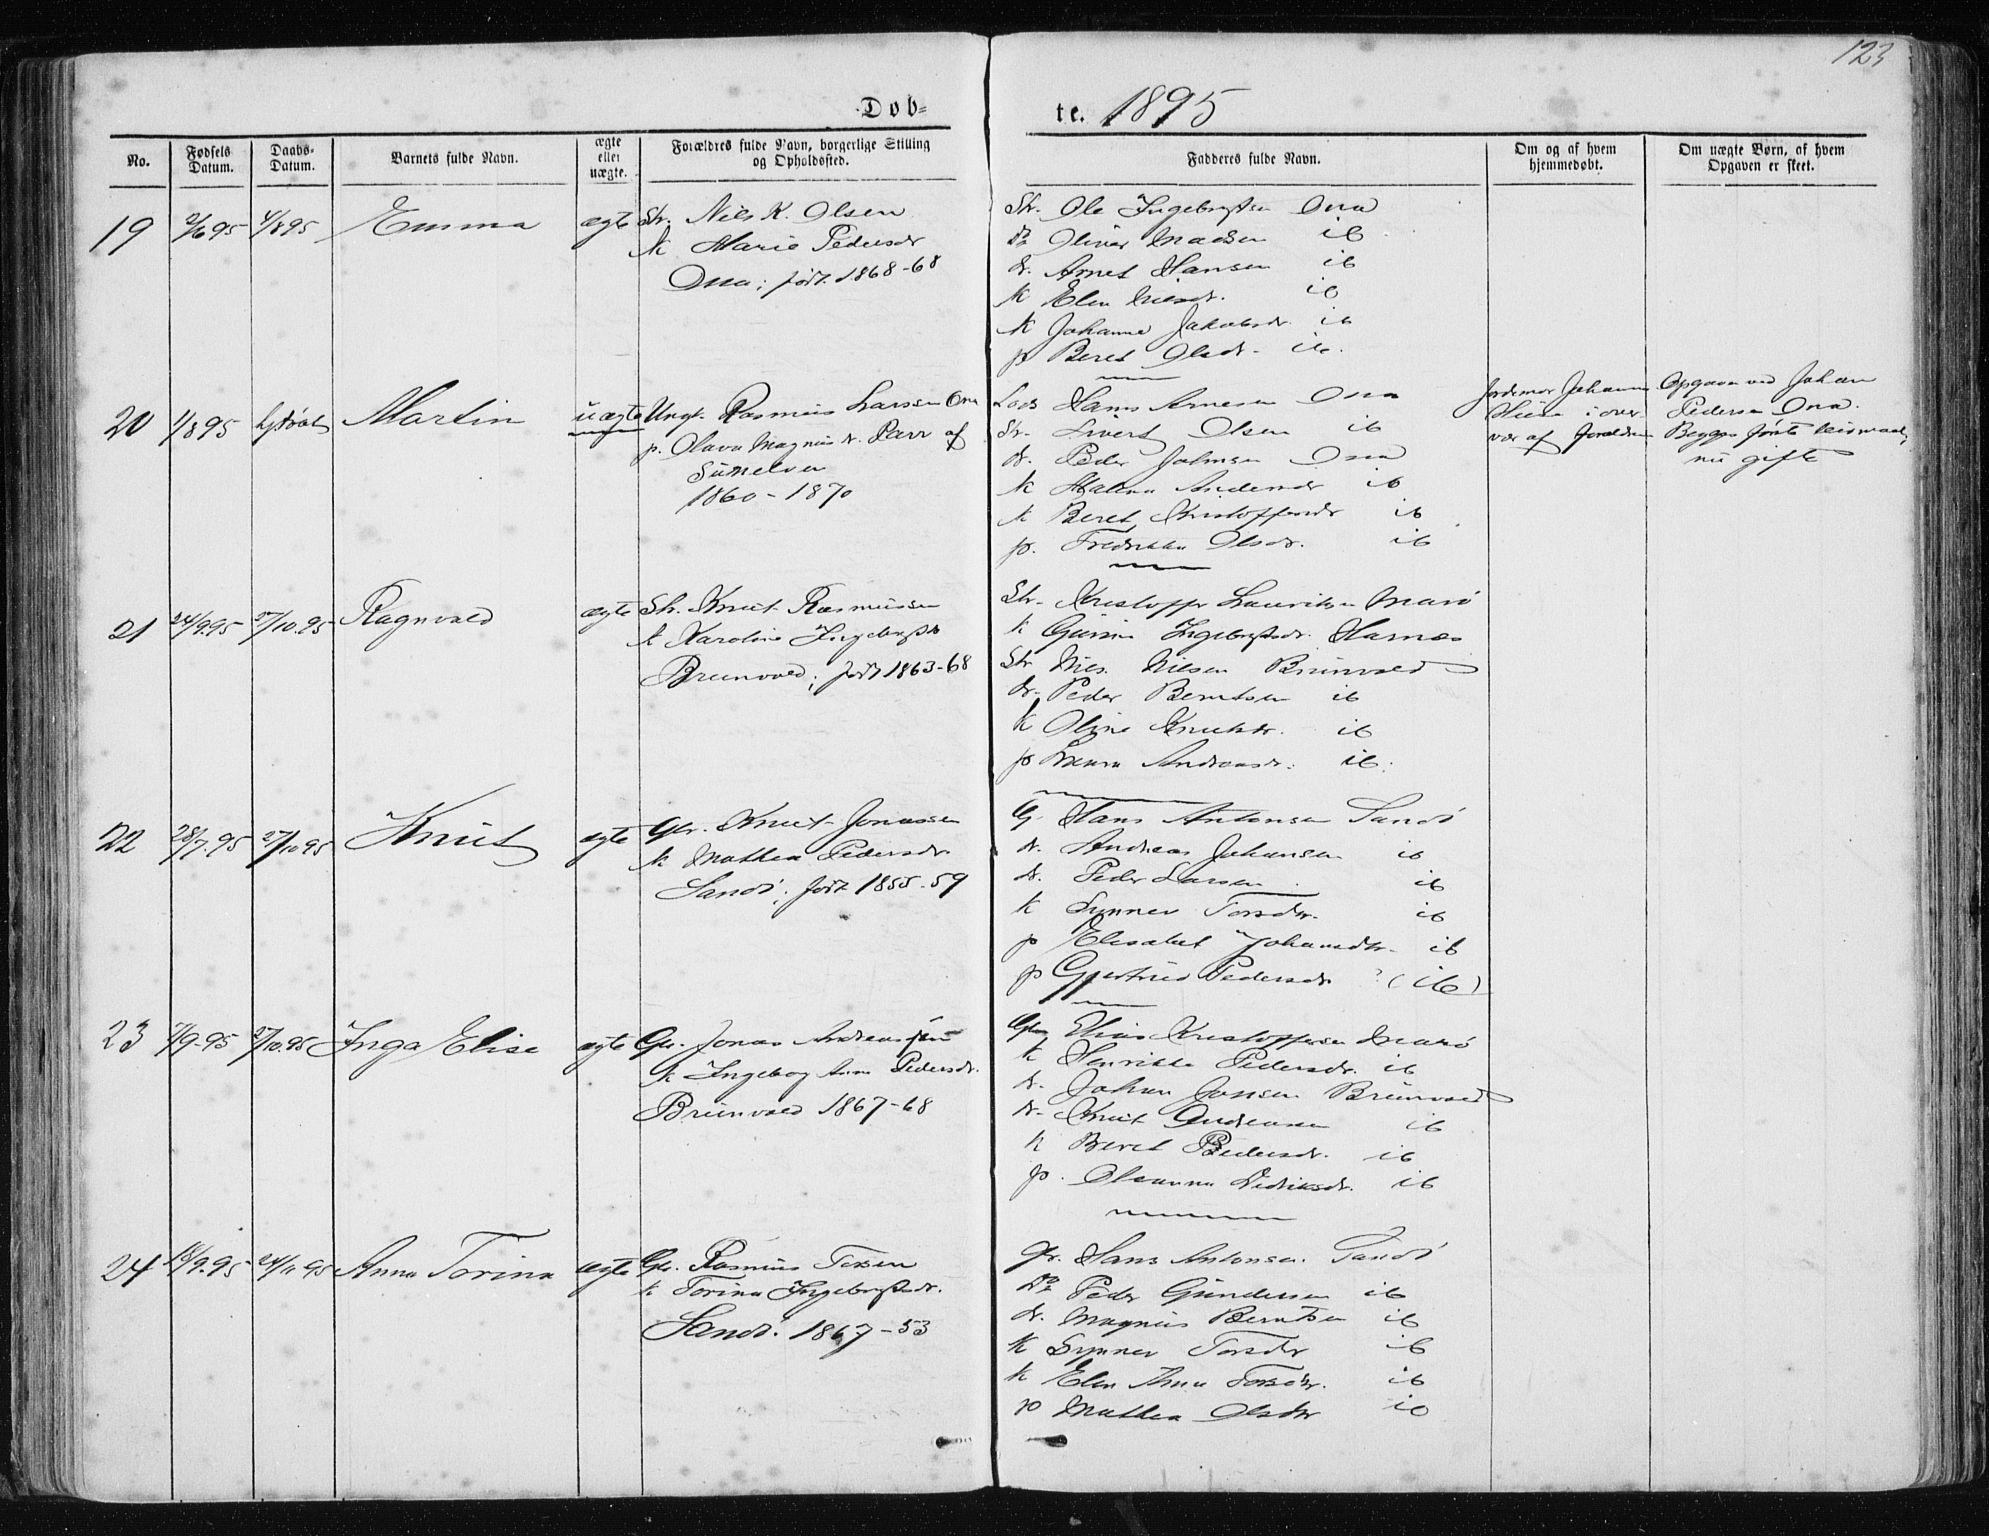 123
Döb=
te. 1895
No.
Fødsels Datum.
Daabs-Datum.
Barnets fulde Navn.
ægte eller uægte.
Forældres fulde Navn, borgerlige Stilling og Opholdssted.
Fadderes fulde Navn.
Om og af hvem hjemmedøbt.
Om uægte Børn, af hvem Opgaven er skeet.
19 2/6 95 4/8 95 Emma ægte Str. Nils K. Olsen
k Marie Pedersdr
Ona; født 1868-68
Str. Ole Ingebrigtsen Ona
do Oliver Madsen ib
dr. Arnet Hansen ib
k Elen Nilsdr. ib
k Johanne Jakobsdr. ib
p Beret Olsdr. ib.
20 1/8 95 hjdøbt Martin uægte Ungk. Rasmus Larsen Ona
p. Olava Magnusdr. Parr af
Sunelven
1860-1870
Lods Hans Arnesen Ona
Str. Sivert Olsen ib
dr. Peder Johnsen Ona
k Malena Andersdr ib
k Beret Kristoffersdr ib
p. Fredrikka Olsdr. ib
Jordemor Johanna
i over
vær af Forældrene
Opgaven ved Johan
Pedersen Ona.
Begges første leiermaal,
nu gifte
21 24/9 95 27/10.95 Ragnvald ægte Str. Knut Rasmussen
k Karoline Ingebrigtsdr
Breivold; født 1863-68
Str. Kristoffer Lauritsen Marø
k Ingebrigtsdr. Harnæs
Str. Nils Nilsen Brunvold
dr. Peder Berntsen ib
k Oline Knutsdr. ib
p Andreasdr. ib.
22 28/7.95 27/10 95 Knut ægte Gbr. Knut Jonassen
k Mathea Pedersdr
Sandø; født 1855-59
G Hans Antonsen Sandø
dr. Andreas Johansen ib
dr. Peder Larsen ib
k Synnev Torsdtr. ib
p Elisabet Johansdtr. ib
p Gjertrud Pedersdr ? (ib)
23 7/9-95 27/10.95 Inga Elise ægte Gbr. Jonas Andreas
k Ingeborg Anna Pedersdr.
Brunvold 1867-68
Elias Kristoffersen Marø
k Henrikke Pedersdr. ib
dr. Johan Jonsen Brunvold
dr. Knut Andreasen ib
k Beret Pedersdr. ib
p. Olianna Didriksdr. ib
24 18/9.95 24/11 95 Anna Torina ægte Gbr. Rasmus Tosen
k Torina Ingebrigtsdr.
Sandø. 1867-53
Gbr. Hans Antonsen Sandø
do Peder Gundersen ib
dr. Magnus Berntsen ib
k Synnev Torsdtr ib
k Elen Anna Torsdtr. ib
p Mathea Olsdtr ib